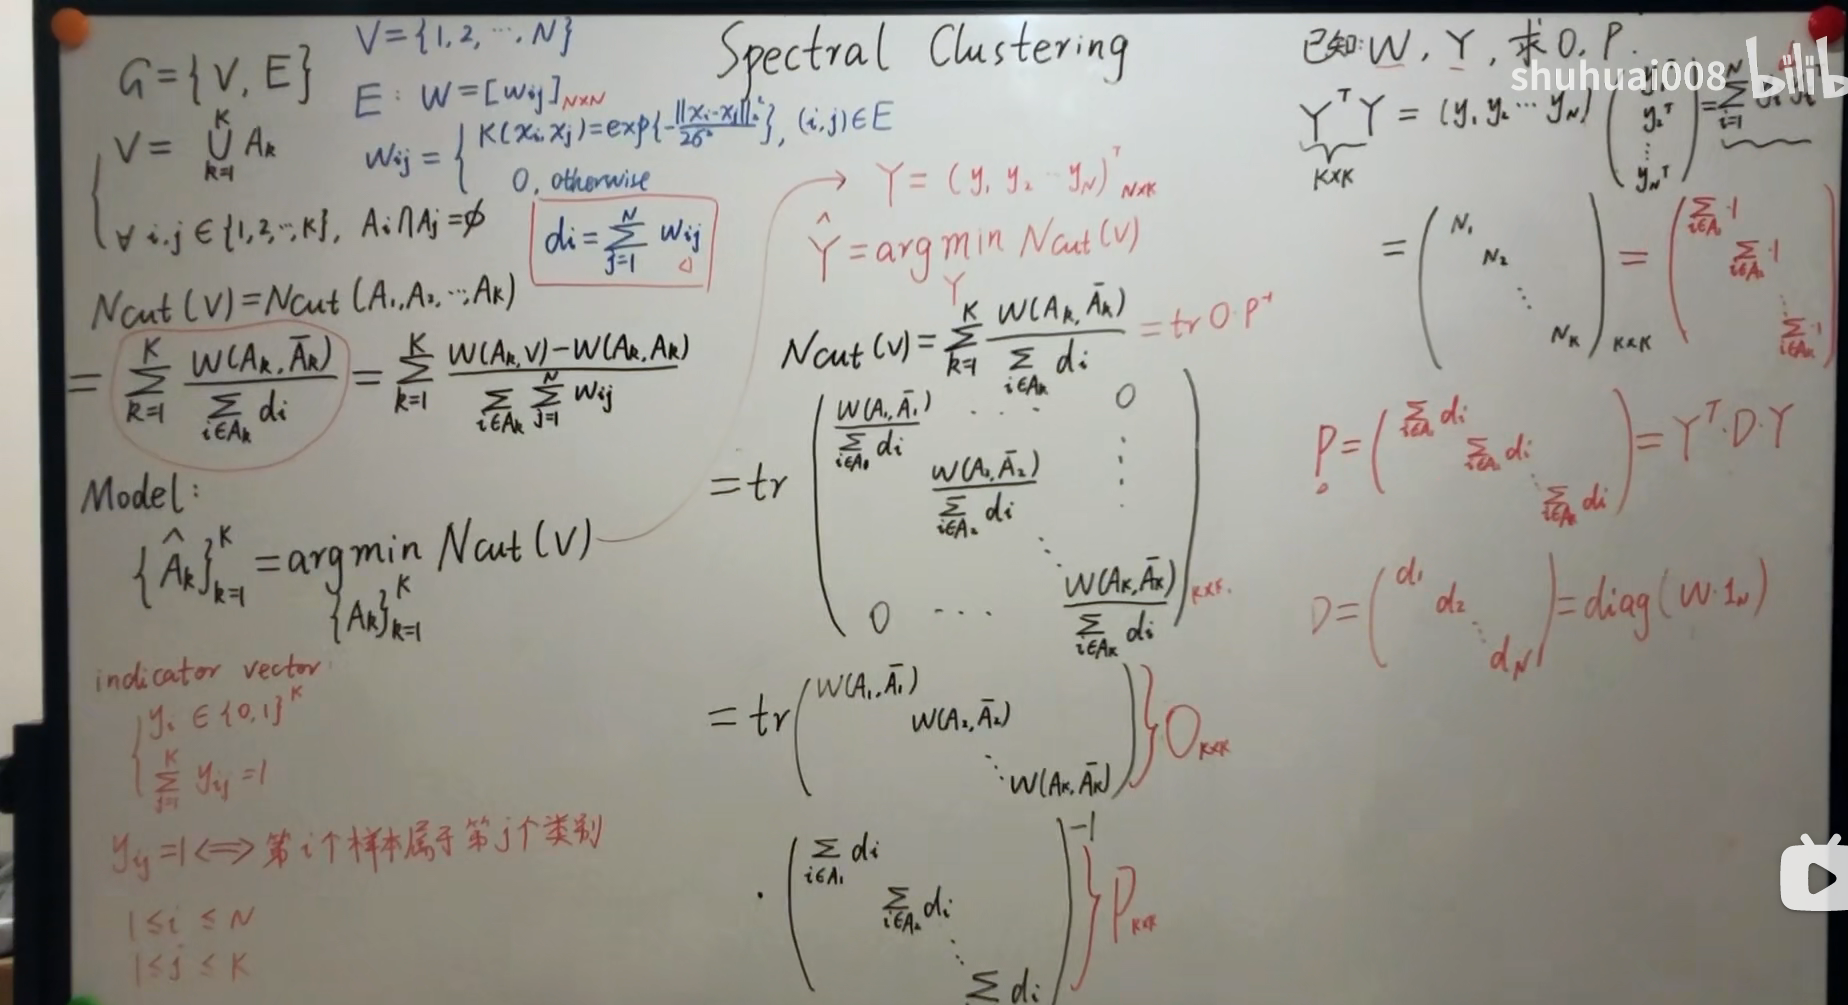 Spectral Clustering
G={V, E}
V=⋃_{k=1}^{K} A_k
∀ i.j ∈{1,2,…,K}, A_i∩A_j=∅
V={1,2,…,N}
E: W=[w_ij]_{N×N}
w_ij = { K(x_i,x_j)=exp{-||x_i-x_j||_2^2/2σ²}, (i,j)∈E
0, otherwise
d_i=∑_{j=1}^{N} w_ij
Ncut(V)=Ncut(A_1,A_2,…,A_K)
=∑_{k=1}^{K} W(A_k,Ā_k)/∑_{i∈A_k} d_i = ∑_{k=1}^{K} (W(A_k,V)-W(A_k,A_k))/(∑_{i∈A_k} ∑_{j=1}^{N} w_ij)
Model:
{Â_k}_{k=1}^{K}=argmin_{{A_k}_{k=1}^{K}} Ncut(V)
indicator vector
y_i ∈{0,1}^K
∑_{j=1}^{K} y_ij=1
y_ij=1⟺第i个样本属于第j个类别
1≤i≤N
1≤j≤K
Y=(y_1 y_2 … y_N)^T_{N×K}
Ŷ=argmin_Y Ncut(V)
Ncut(V)=∑_{k=1}^{K} W(A_k,Ā_k)/∑_{i∈A_k} d_i =tr O·P^{-1}
=tr ( W(A_1,Ā_1)/∑_{i∈A_1} d_i … 0
W(A_2,Ā_2)/∑_{i∈A_2} d_i ⋮
⋱
0 … W(A_K,Ā_K)/∑_{i∈A_K} d_i )_{K×K}
=tr ( W(A_1,Ā_1)
W(A_2,Ā_2)
⋱ W(A_K,Ā_K) ) } O_{K×K}
· ( ∑_{i∈A_1} d_i
∑_{i∈A_2} d_i
⋱
∑ d_i )^{-1} } P_{K×K}
已知:W, Y, 求O, P.
shuhuai008 bilib
Y^T Y = (y_1 y_2 … y_N) ( y_2^T ⋮ y_N^T ) =∑_{i=1}^{N}
K×K
= ( N_1 N_2 ⋱ N_K )_{K×K} = ( ∑_{i∈A_1} ·1 ∑_{i∈A_2} ·1 ⋱ ∑_{i∈A_K} ·1 )
P= ( ∑_{i∈A_1} d_i ∑_{i∈A_2} d_i ⋱ ∑_{i∈A_K} d_i ) =Y^T·D·Y
D= ( d_1 d_2 ⋱ d_N ) =diag(W·1_N)